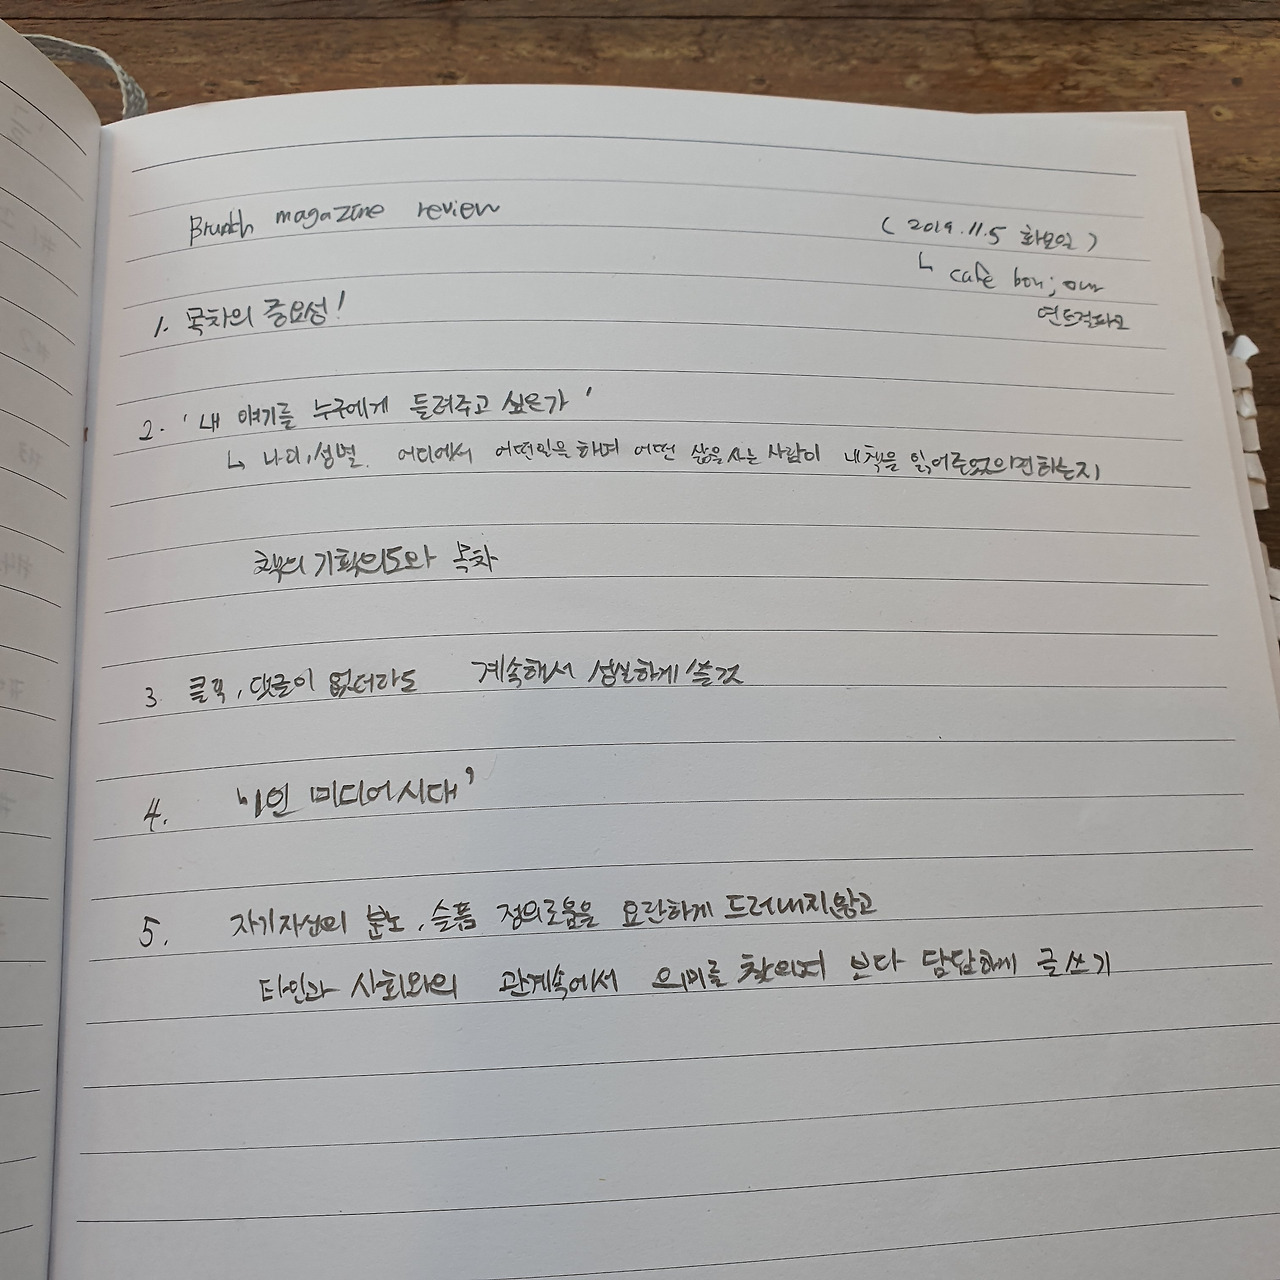 Brunch magazine review
(2019.11.5 화요일)
↳ cafe bonjour
1. 목차의 중요성!
2. '내 이야기를 누구에게 들려주고 싶은가'
↳ 나이, 성별, 어디에서 어떤일을 하며 어떤 삶을 사는 사람이 내 책을 읽어주었으면 하는지
책의 기획의도와 목차
3. 클릭, 댓글이 없더라도 계속해서 성실하게 쓸 것
4. '1인 미디어시대'
5. 자기자신의 분노, 슬픔 정의로움을 요란하게 드러내지 않고
타인과 사회와의 관계속에서 의미를 찾으며 보다 담담하게 글쓰기